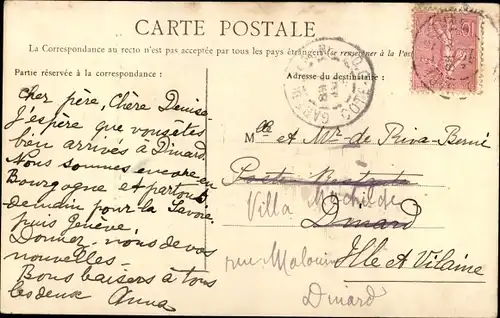 CARTE POSTALE
La Correspondance au recto n'est pas acceptée par tous les pays étrangers (se renseigner à la Poste
Partie réservée à la correspondance :
Adresse du destinataire :
Cher père, Chère Denise
J'espère que vous êtes
bien arrivés à Dinard.
Nous sommes encore en
Bourgogne et partons
demain pour la Savoie
puis Genève.
Donnez-nous de vos
nouvelles.
Bons baisers à tous
les deux Anna
Mlle et Mr de Riva-Berni
Poste Restante
Villa Mathilde
Dinard
rue Malouine
Ille et Vilaine
Dinard